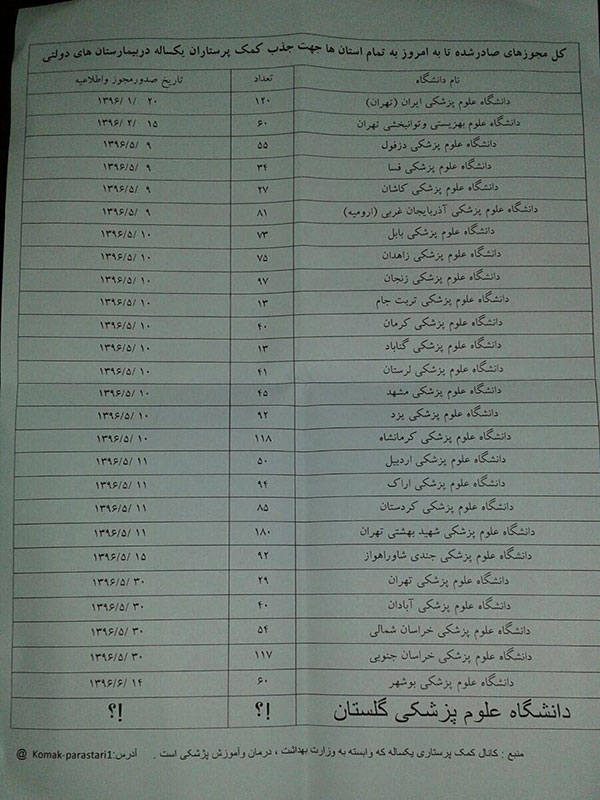 کل مجوزهای صادرشده تا به امروز به تمام استان ها جهت جذب کمک پرستاران یکساله دربیمارستان های دولتی
نام دانشگاه تعداد تاریخ صدورمجوز واطلاعیه
دانشگاه علوم پزشکی ایران (تهران) ۱۲۰ ۲۰ /۱ /۱۳۹۶
دانشگاه علوم بهزیستی وتوانبخشی تهران ۶۰ ۱۵ /۲ /۱۳۹۶
دانشگاه علوم پزشکی دزفول ۵۵ ۹ /۱۳۹۶/۵
دانشگاه علوم پزشکی فسا ۳۴ ۹ /۱۳۹۶/۵
دانشگاه علوم پزشکی کاشان ۲۷ ۹ /۱۳۹۶/۵
دانشگاه علوم پزشکی آذربایجان غربی (ارومیه) ۸۱ ۹ /۱۳۹۶/۵
دانشگاه علوم پزشکی بابل ۷۳ ۱۰ /۱۳۹۶/۵
دانشگاه علوم پزشکی زاهدان ۷۵ ۱۰ /۱۳۹۶/۵
دانشگاه علوم پزشکی زنجان ۹۷ ۱۰ /۱۳۹۶/۵
دانشگاه علوم پزشکی تربت جام ۱۳ ۱۰ /۱۳۹۶/۵
دانشگاه علوم پزشکی کرمان ۴۰ ۱۰ /۱۳۹۶/۵
دانشگاه علوم پزشکی گناباد ۱۳ ۱۰ /۱۳۹۶/۵
دانشگاه علوم پزشکی لرستان ۴۱ ۱۰ /۱۳۹۶/۵
دانشگاه علوم پزشکی مشهد ۴۵ ۱۰ /۱۳۹۶/۵
دانشگاه علوم پزشکی یزد ۹۲ ۱۰ /۱۳۹۶/۵
دانشگاه علوم پزشکی کرمانشاه ۱۱۸ ۱۰ /۱۳۹۶/۵
دانشگاه علوم پزشکی اردبیل ۵۰ ۱۱ /۱۳۹۶/۵
دانشگاه علوم پزشکی اراک ۹۴ ۱۱ /۱۳۹۶/۵
دانشگاه علوم پزشکی کردستان ۸۵ ۱۱ /۱۳۹۶/۵
دانشگاه علوم پزشکی شهید بهشتی تهران ۱۸۰ ۱۱ /۱۳۹۶/۵
دانشگاه علوم پزشکی جندی شاوراهواز ۹۲ ۱۵ /۱۳۹۶/۵
دانشگاه علوم پزشکی تهران ۲۹ ۳۰ /۱۳۹۶/۵
دانشگاه علوم پزشکی آبادان ۴۰ ۳۰ /۱۳۹۶/۵
دانشگاه علوم پزشکی خراسان شمالی ۵۴ ۳۰ /۱۳۹۶/۵
دانشگاه علوم پزشکی خراسان جنوبی ۱۱۷ ۳۰ /۱۳۹۶/۵
دانشگاه علوم پزشکی بوشهر ۶۰ ۱۴ /۱۳۹۶/۶
دانشگاه علوم پزشکی گلستان !؟ !؟
منبع : کانال کمک پرستاری یکساله که وابسته به وزارت بهداشت ، درمان وآموزش پزشکی است . آدرس:Komak-parastari1 @